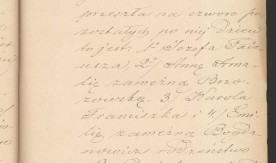 przeszła na czworo po
zostałych po niej dzieci
to jest: 1/ Józefa Tade
usza, 2/ Annę Ama
lię zamężną Brzo
zowską 3/ Karola
Franciszka i 4/ Emi
lię zamężną Bogda
nowicz Dzieństwo